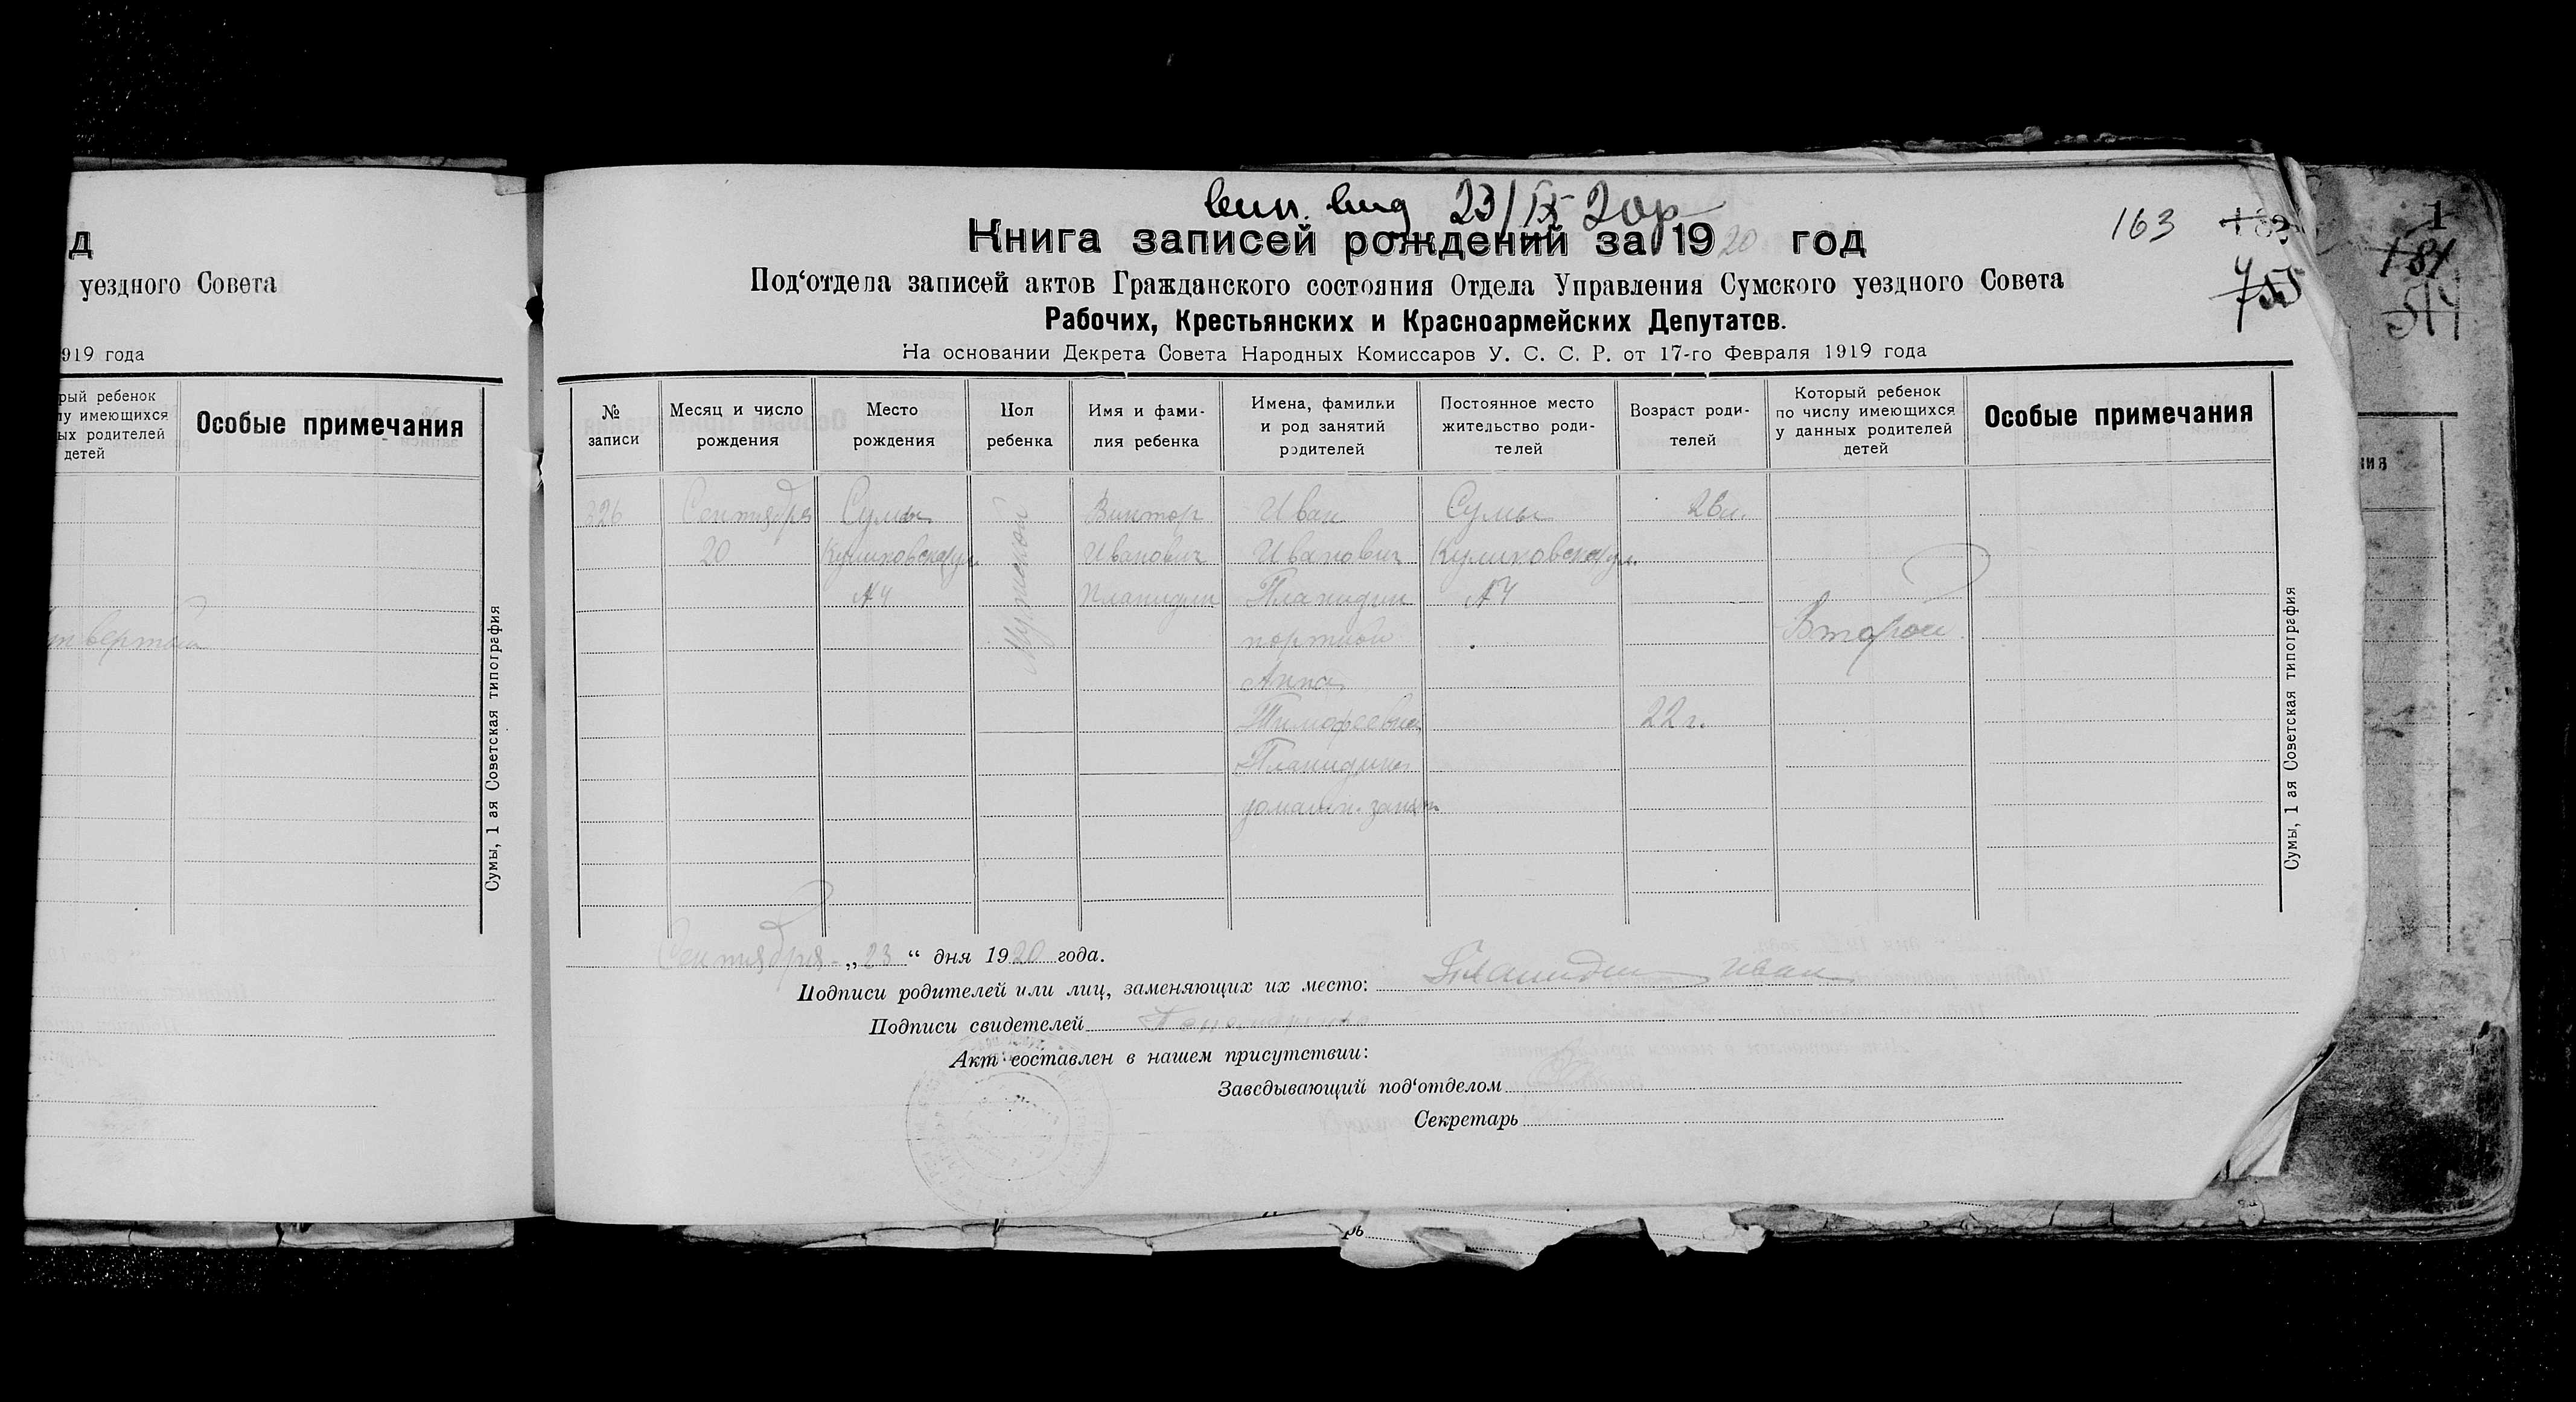 д
уездного Совета
919 года
рый ребенок
лу имеющихся
ых родителей
детей
Особые примечания
твертый
Сумы, 1 ая Советская типография
вып. вид 23/IX 20р
Книга записей рождений за 1920 год
163
755
Под‘отдела записей актов Гражданского состояния Отдела Управления Сумского уездного Совета
Рабочих, Крестьянских и Красноармейских Депутатов.
На основании Декрета Совета Народных Комиссаров У. С. С. Р. от 17-го Февраля 1919 года
№ записи
Месяц и число рождения
Место рождения
Пол ребенка
Имя и фами- лия ребенка
Имена, фамилии и род занятий родителей
Постоянное место жительство роди- телей
Возраст роди- телей
Который ребенок по числу имеющихся у данных родителей детей
Особые примечания
326 Сентября Сумы Мужской Виктор Иван Сумы 26 л.
20 Куликовская ул. Иванович Иванович Куликовская ул.
№4 Плахидин Плахидин №4
портной Второй
Анна
Тимофеевна 22 г.
Плахидина
домашн. занят.
Сумы, 1 ая Советская типография
Сентября „23“ дня 1920 года.
Подписи родителей или лиц, заменяющих их место: Плахидин Иван
Подписи свидетелей
Акт составлен в нашем присутствии:
Заведывающий под‘отделом
Секретарь
рь
1
181
514
ия